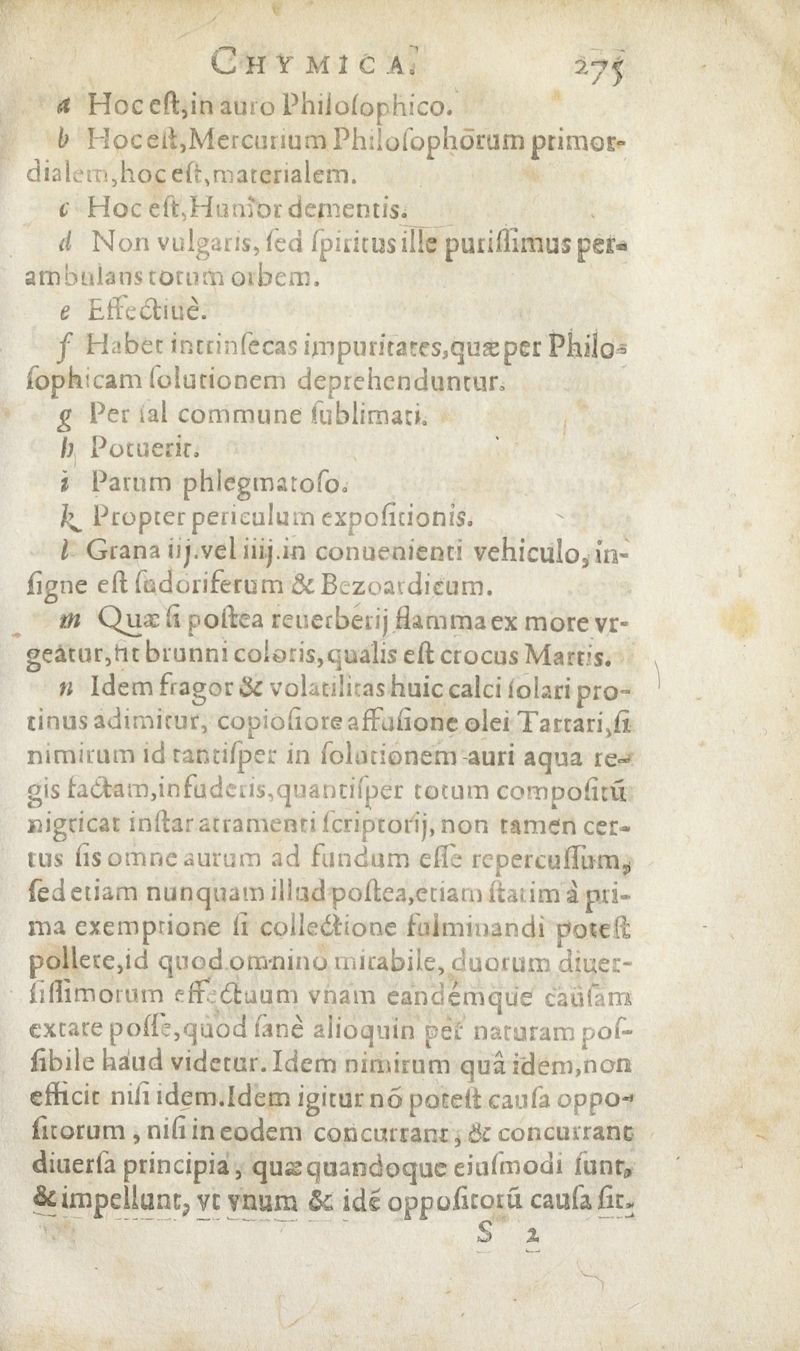 CHYMICA. 275
a Hoc eſt,in auro Philoſophico.
b Hoc eſt,Mercurium Philoſophorum primor-
dialem,hoc eſt,materialem.
c Hoc eſt,Huniór dementis.
d Non vulgaris, ſed ſpiritus ille puriſſimus per-
ambulans totum orbem.
e Effectiuè.
f Habet intrinſecas impuritates,quæ per Philo-
ſophicam ſolutionem deprehenduntur.
g Per ſal commune ſublimati.
h Potuerit.
i Parum phlegmatoſo.
k Propter periculum expoſitionis.
l Grana iij.vel iiij.in conuenienti vehiculo, in-
ſigne eſt ſudoriferum & Bezoardicum.
m Quæ ſi poſtea reuerberij flamma ex more vr-
geatur,fit brunni coloris,qualis eſt crocus Martis.
n Idem fragor & volatilitas huic calci ſolari pro-
tinus adimitur, copioſiore affuſione olei Tartari,ſi
nimirum id tantiſper in ſolutionem auri aqua re-
gis factam,infuderis,quantiſper totum compoſitũ
nigricat inſtar atramenti ſcriptorij, non tamen cer-
tus ſis omne aurum ad fundum eſſe repercuſſum,
ſed etiam nunquam illud poſtea,etiam ſtatim à pri-
ma exemptione ſi collectione fulminandi poteſt
pollere,id quod omnino mirabile, duorum diuer-
ſiſſimorum effectuum vnam eandémque cauſam
extare poſſe,quod ſanè alioquin per naturam poſ-
ſibile haud videtur. Idem nimirum quâ idem,non
efficit niſi idem.Idem igitur nõ poteſt cauſa oppo-
ſitorum , niſi in eodem concurrant, & concurrant
diuerſa principia, quæ quandoque eiuſmodi ſunt,
& impellunt, vt vnum & idẽ oppoſitorũ cauſa ſit.
S 2